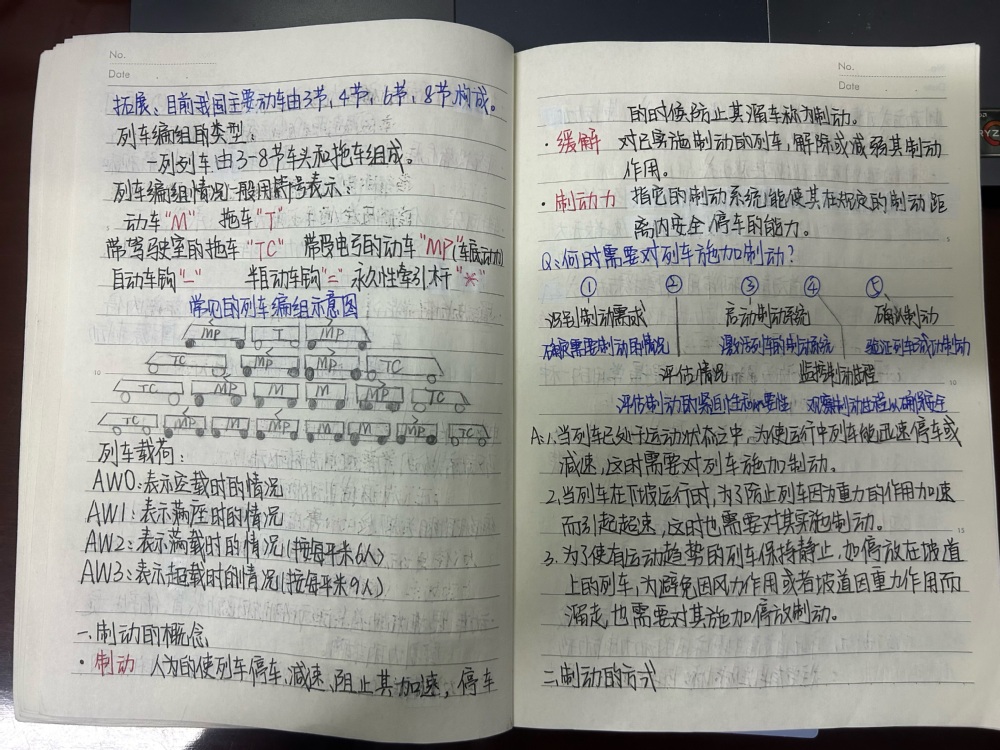 No.
Date
拓展、目前我国主要动车由3节,4节,6节,8节构成。
列车编组的类型:
一列列车由3-8节车头和拖车组成。
列车编组情况一般用符号表示:
动车"M" 拖车"T"
带驾驶室的拖车"TC" 带受电弓的动车"MP"(车底动力)
自动车钩"-" 半自动车钩"=" 永久性牵引杆"*"
常见的列车编组示意图
MP T MP
TC MP MP TC
TC MP M M MP TC
TC MP M MP M M MP TC
列车载荷:
AW0:表示空载时的情况
AW1:表示满座时的情况
AW2:表示满载时的情况(按每平米6人)
AW3:表示超载时的情况(按每平米9人)
一.制动的概念
·制动 人为的使列车停车、减速、阻止其加速,停车
No.
Date
的时候防止其溜车称为制动。
·缓解 对已实施制动的列车,解除或减弱其制动
作用。
·制动力 指它的制动系统能使其在规定的制动距
离内安全停车的能力。
Q:何时需要对列车施加制动?
① ② ③ ④ ⑤
识别制动需求 启动制动系统 确认制动
确定需要制动的情况 激活列车的制动系统 验证列车成功制动
评估情况 监控制动过程
评估制动的紧急性和必要性 观察制动过程以确保安全
A:1.当列车已处于运动状态之中,为使运行中列车能迅速停车或
减速,这时需要对列车施加制动。
2.当列车在下坡运行时,为了防止列车因为重力的作用加速
而引起超速,这时也需要对其实施制动。
3.为了使有运动趋势的列车保持静止,如停放在坡道
上的列车,为避免因风力作用或者坡道因重力作用而
溜走也需要对其施加停放制动。
二.制动的方式